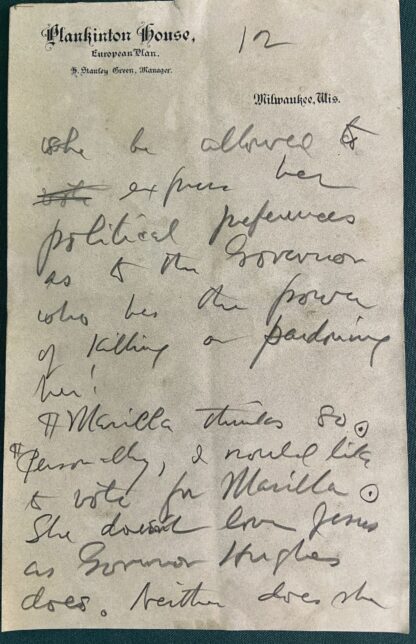 Plankinton House,
European Plan.
N. Stanley Green, Manager.
12
Milwaukee, Wis.
she be allowed to
vote express her
political preferences
as to the Governor
who has the power
of killing or pardoning
her!
Marilla thinks so.
Personally, I would like
to vote for Marilla.
She doesnt love Jesus
as Governor Hughes
does. Neither does she